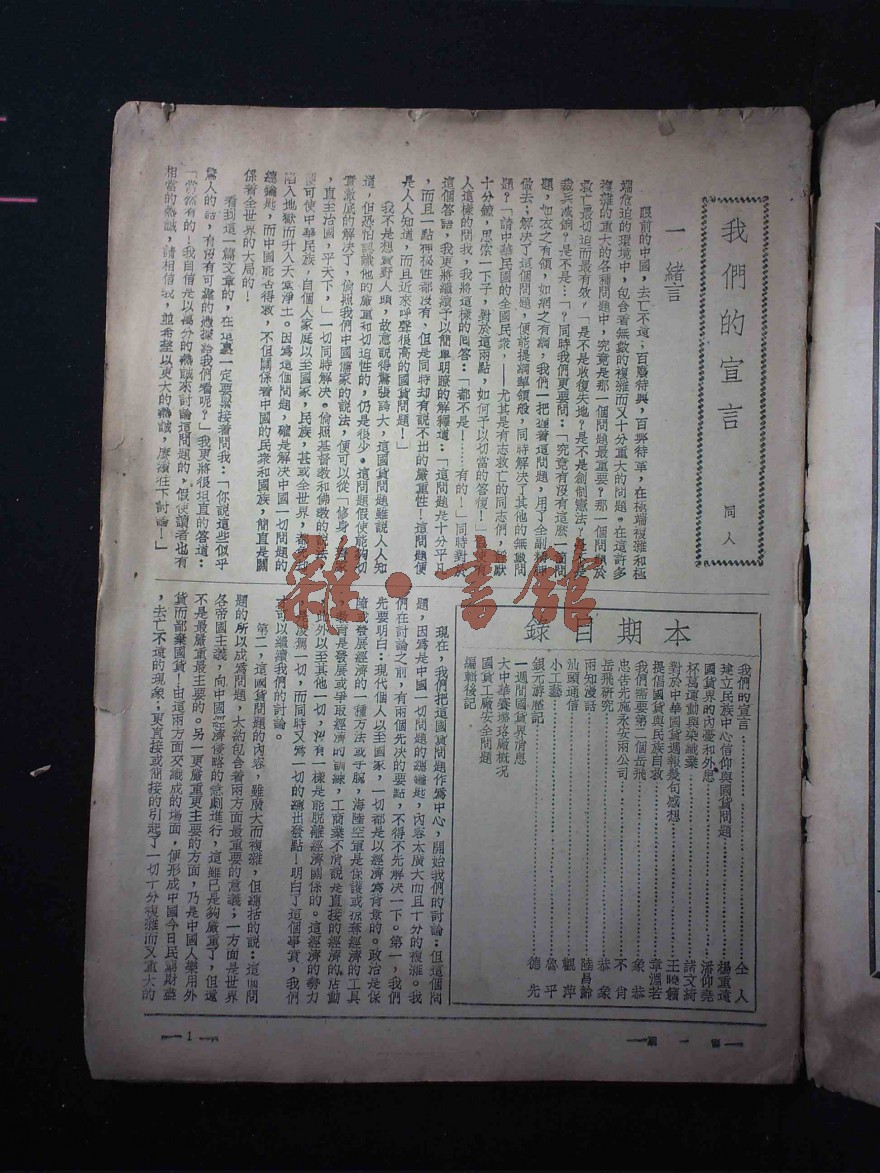 我們的宣言
同人
一 緒言
眼前的中國，去亡不遠；百廢待興，百弊待革，在極端複雜和極
端危迫的環境中，包含着無數的複雜而又十分重大的問題。在這許多
複雜的重大的各種問題中，究竟是那一個問題最重要？那一個問題於
救亡最切迫而最有效？「是不是收復失地？是不是創制憲法？是不是
裁兵減餉？是不是…？」同時我們更要問：「究竟有沒有這麽一個問
題，如衣之有領，如網之有綱，我們一把握着這問題，用了全副精神
做去；解決了這個問題，便能提綱挈領般，同時解決了其他的無數問
題？」「請中華民國的全國民衆，——尤其是有志救亡的同志們，
十分鐘，思索一下子，對於這兩點，如何予以切當的答復！」
人這樣的問我，我將這樣的回答：「都不是！……有的！」同時對於
這個答語，我更將繼續予以簡單明瞭的解釋道：「這問題是十分平凡
，而且一點神秘性都沒有，但是同時却有說不出的嚴重性！這問題便
是人人知道，而且近來呼聲很高的國貨問題！」
我不是想賣野人頭，故意說得驚張誇大，這國貨問題雖說人人知
道，但恐怕認識他的嚴重和切迫性的，仍是很少。這問題假使能夠切
實澈底的解決了，倘照我們中國儒家的說法，便可以從「修身，齊家
，直至治國，平天下，」一切同時解決。倘照基督教和佛教的說法
便可使中華民族，自個人家庭以至國家，民族，甚或全世界，都
陷入地獄而升入天堂淨土。因爲這個問題，確是解決中國一切問題的
總鑰匙，而中國能否得救，不但關係着中國的民衆和國族，簡直是關
係着全世界的大局的！
看到這一篇文章的，在這裏一定要緊接着問我：「你說這些似乎
驚人的話，有沒有可靠的憑據給我們看呢？」我更將很坦直的答道：
「當然有的！我自信是以萬分的熱誠來討論這問題的，假使讀者也有
相當的熱誠，請相信我，並希望以更大的熱誠，賡續往下討論！」
本期目錄
我們的宣言……仝人
建立民族中心信仰與國貨問題……楊重遠
國貨界的內憂和外患……潘仰堯
杯葛運動與染織業……諸文綺
對於中華國貨週報幾句感想……王曉籟
提倡國貨與民族自救……章淵若
我們需要第二個岳飛……象恭
忠告先施永安兩公司……不肖
岳飛研究……恭象
兩知漫話……陸昌齡
汕頭通信……觀萍
小工藝……魯平
銀元游歷記……德先
一週間國貨界消息
大中華賽璐珞廠概况
國貨工廠安全問題
編輯後記
現在，我們把這國貨問題作爲中心，開始我們的討論：但這個問
題，因爲是中國一切問題的總鑰匙，內容太廣大而且十分的複雜。我
們在討論之前，有兩個先決的要點，不得不先解決一下。第一，我們
先要明白：現代個人以至國家，一切都是以經濟爲背景的。政治是保
障或發展經濟的一種方法或手腕，海陸空軍是保護或掠奪經濟的工具
，教育是發展或爭取經濟的訓練，工商業不消說是直接的經濟的活動
此外以至其他一切，沒有一樣是能脫離經濟關係的。這經濟的勢力
是淩駕一切，而同時又爲一切的總出發點！明白了這個事實，我們
才可以繼續我們的討論。
第二，這國貨問題的內容，雖廣大而複雜，但總括的說：這個問
題的所以成爲問題，大約包含着兩方面最重要的意義；一方面是世界
各帝國主義，向中國經濟侵略的惡劇進行，這雖已是夠嚴重了，但還
不是最嚴重最主要的。另一更嚴重更主要的方面，乃是中國人樂用外
貨而鄙棄國貨！由這兩方面交織成的塲面，便形成中國今日民窮財盡
，去亡不遠的現象；更直接或間接的引起了一切十分複雜而又重大的
第一期
1
雜·書館